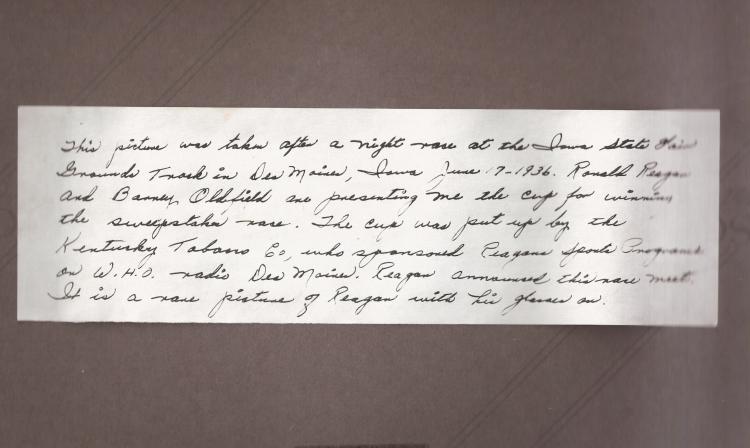 This picture was taken after a night race at the Iowa State Fair
Grounds Track in Des Moines, Iowa June 17-1936. Ronald Reagan
and Barney Oldfield are presenting me the cup for winning
the sweepstakes race. The cup was put up by the
Kentucky Tobacco Co, who sponsored Reagans Sports Programs
on W.H.O. radio Des Moines. Reagan announced this race meet.
It is a rare picture of Reagan with his glasses on.